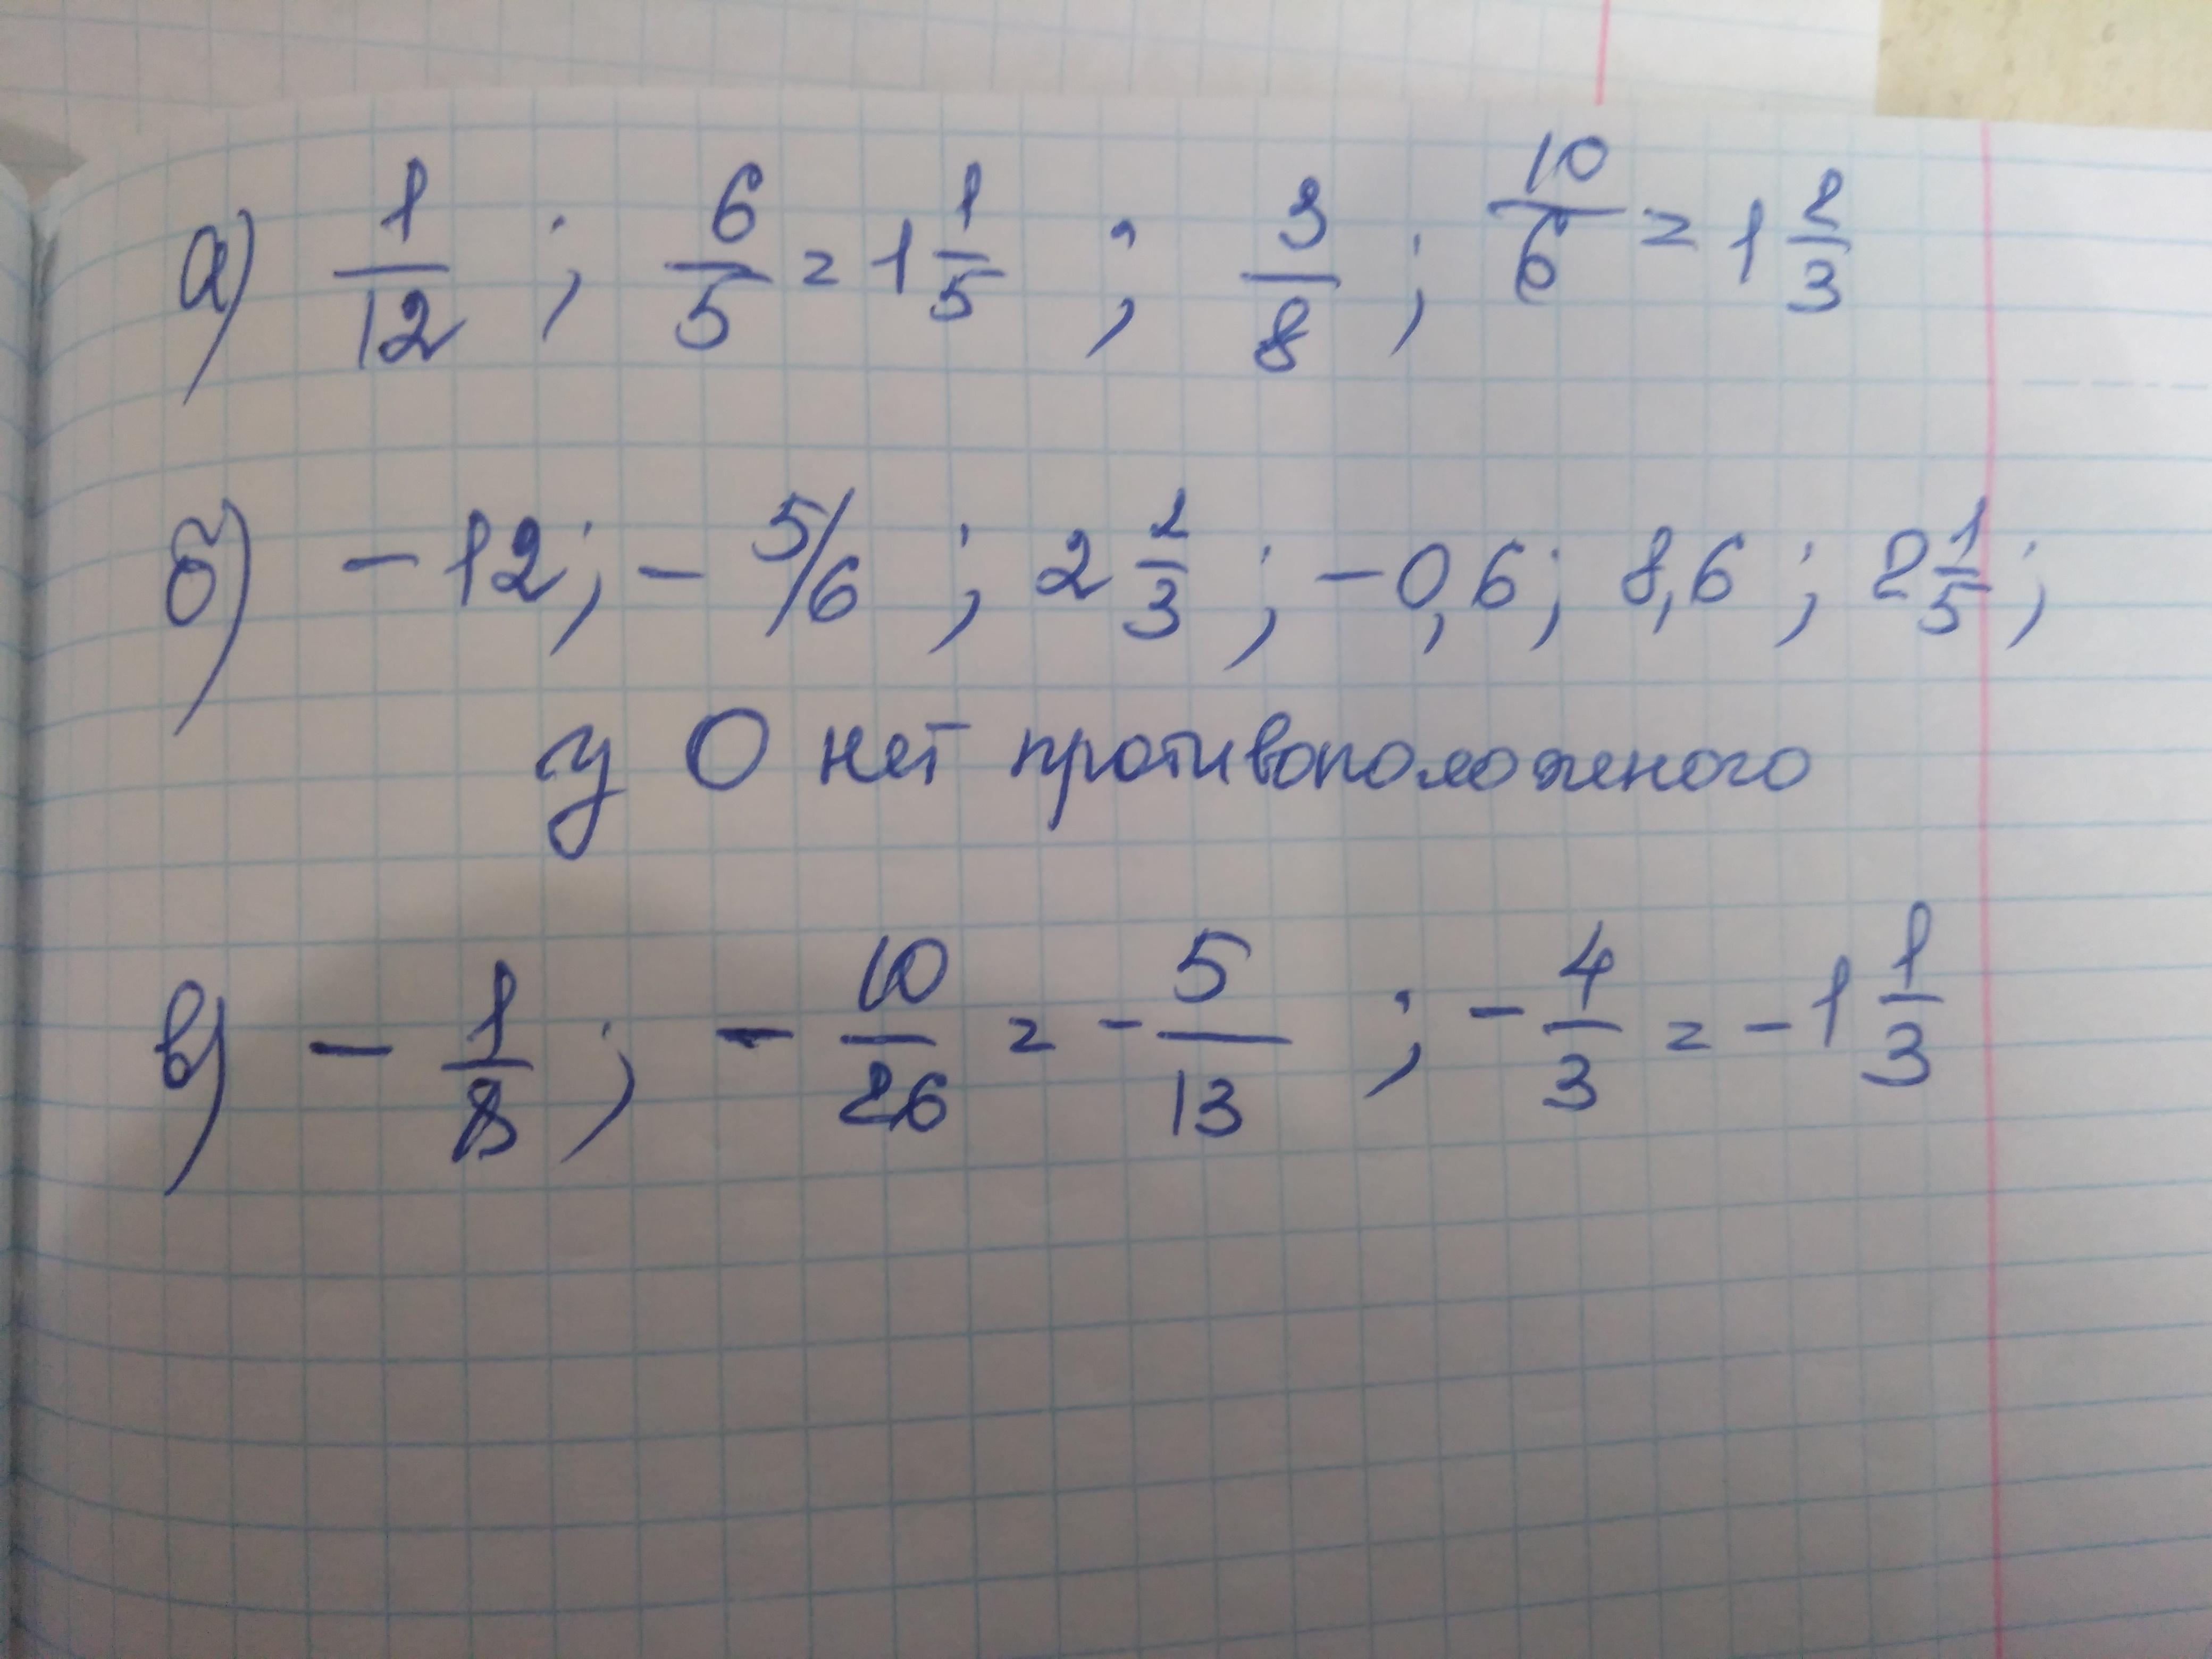 а) 1/12 ; 6/5 = 1 1/5 ; 3/8 ; 10/6 = 1 2/3
б) -12; - 5/6 ; 2 2/3 ; -0,6; 8,6 ; 2 1/5 ;
у 0 нет противоположеного
в) - 1/8 ; - 10/26 = - 5/13 ; - 4/3 = -1 1/3